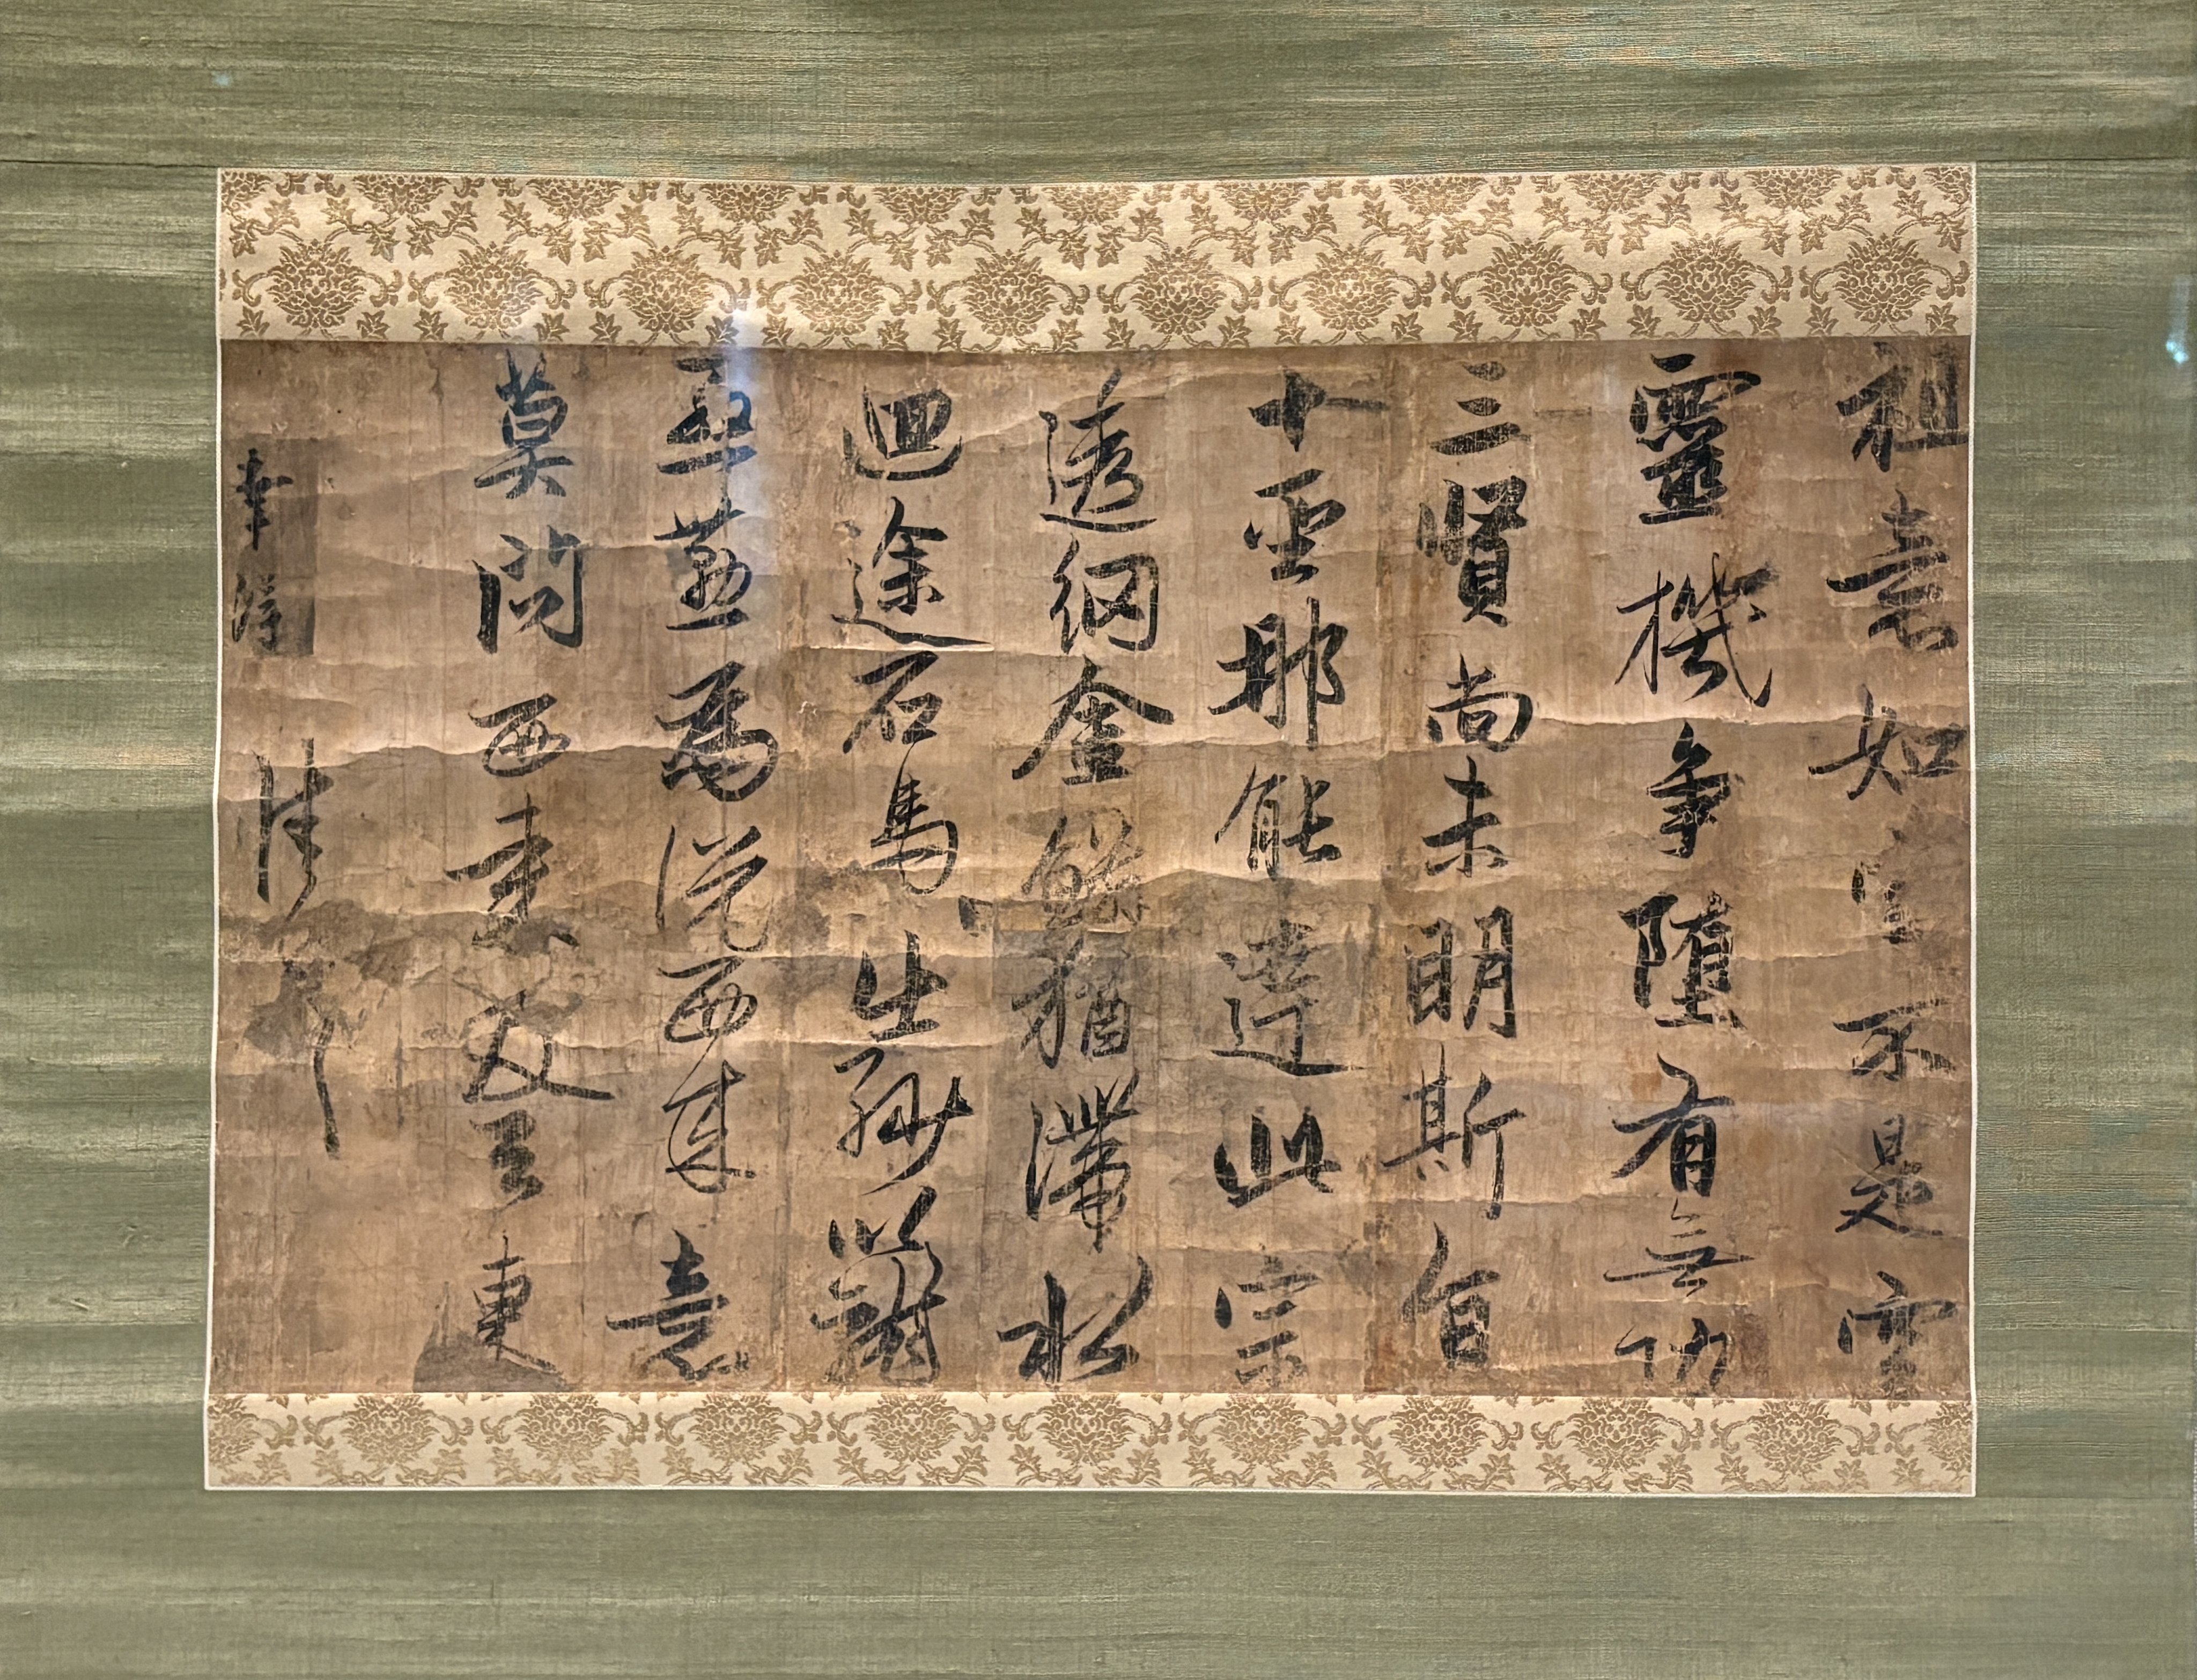 祖意如空不是空
靈機争堕有無功
三賢尚未明斯旨
十聖那能達此宗
透網金鱗猶滞水
迴途石馬出紗籠
慇懃為説西来意
莫問西来及与東